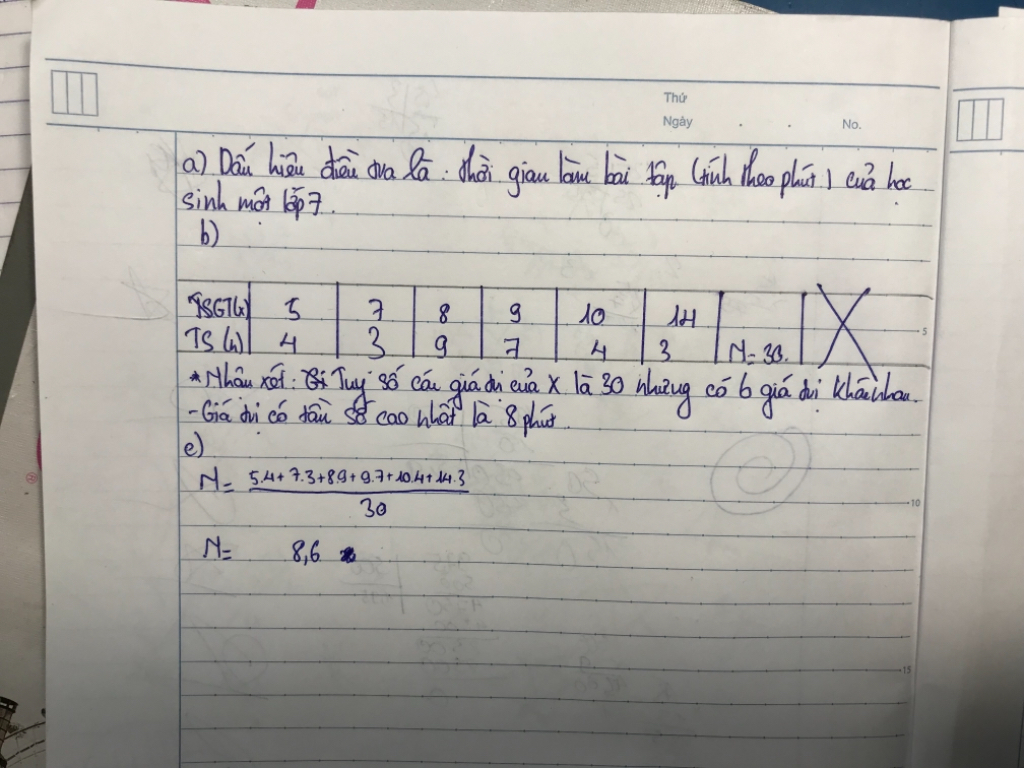 Thứ
Ngày . . No.
a) Dấu hiệu điều tra là: thời gian làm bài tập (tính theo phút) của học
sinh một lớp 7.
b)
5 7 8 9 10 14
TS (n) 4 3 9 7 4 3 N=30.
* Nhân xét: Tuy số các giá trị của X là 30 nhưng có 6 giá trị khác nhau.
- Giá trị có tần số cao nhất là 8 phút.
c)
N = 5.4+7.3+8.9+9.7+10.4+14.3
30
N = 8,6
5
10
15